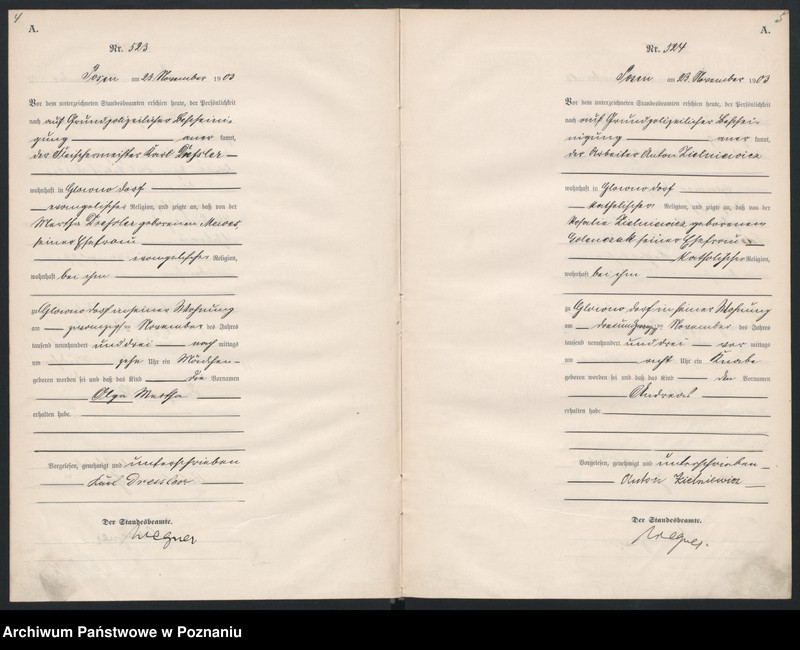 4
A.
Nr. 523.
Posen am 23. November 1903
Vor dem unterzeichneten Standesbeamten erschien heute, der Persönlichkeit
nach auf Grund polizeilicher Bescheini-
gung aner kannt,
der Fleischermeister Karl Dressler
wohnhaft in Glowno Dorf
evangelischer Religion, und zeigte an, daß von der
Martha Dressler geborenen
seiner Ehefrau
evangelischer Religion,
wohnhaft bei ihm
zu Glowno Dorf in seiner Wohnung
am zwanzigsten November des Jahres
tausend neunhundert und drei nach mittags
um zehn Uhr ein Mädchen
geboren worden sei und daß das Kind die Vornamen
Olga Martha
erhalten habe.
Vorgelesen, genehmigt und unterschrieben
Karl Dressler
Der Standesbeamte.
Wegner
5
A.
Nr. 524
Posen am 23. November 1903
Vor dem unterzeichneten Standesbeamten erschien heute, der Persönlichkeit
nach auf Grund polizeilicher Beschei-
nigung aner kannt,
der Arbeiter Anton Zielniewicz
wohnhaft in Glowno Dorf
katholischer Religion, und zeigte an, daß von der
Rosalie Zielniewicz geborenen
seiner Ehefrau
katholischer Religion,
wohnhaft bei ihm
zu Glowno Dorf in seiner Wohnung
am November des Jahres
tausend neunhundert und drei vor mittags
um acht Uhr ein Knabe
geboren worden sei und daß das Kind den Vornamen
Andreas
erhalten habe.
Vorgelesen, genehmigt und unterschrieben
Anton Zielniewicz
Der Standesbeamte.
Wegner.
Archiwum Państwowe w Poznaniu